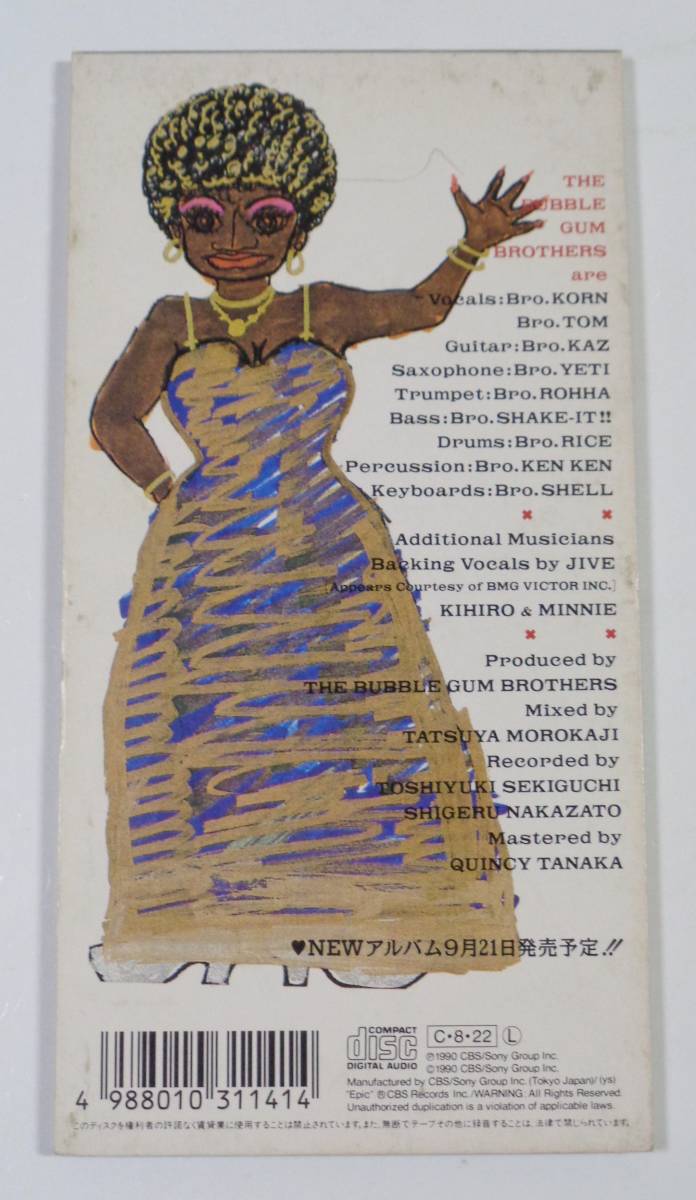 THE
BUBBLE
GUM
BROTHERS
are
Vocals:Bro.KORN
Bro.TOM
Guitar:Bro.KAZ
Saxophone:Bro.YETI
Trumpet:Bro.ROHHA
Bass:Bro.SHAKE-IT!!
Drums:Bro.RICE
Percussion:Bro.KEN KEN
Keyboards:Bro.SHELL
× ×
Additional Musicians
Backing Vocals by JIVE
[Appears Courtesy of BMG VICTOR INC.]
KIHIRO & MINNIE
× ×
Produced by
THE BUBBLE GUM BROTHERS
Mixed by
TATSUYA MOROKAJI
Recorded by
TOSHIYUKI SEKIGUCHI
SHIGERU NAKAZATO
Mastered by
QUINCY TANAKA
♥NEWアルバム9月21日発売予定!!
COMPACT
disc
DIGITAL AUDIO
C•8•22 Ⓛ
℗1990 CBS/Sony Group Inc.
©1990 CBS/Sony Group Inc.
Manufactured by CBS/Sony Group Inc.(Tokyo Japan)/(ys)
"Epic" ®CBS Records Inc./WARNING: All Rights Reserved.
Unauthorized duplication is a violation of applicable laws.
4 988010 311414
このディスクを権利者の許諾なく賃貸業に使用することは禁止されています。また、無断でテープその他に録音することは、法律で禁じられています。